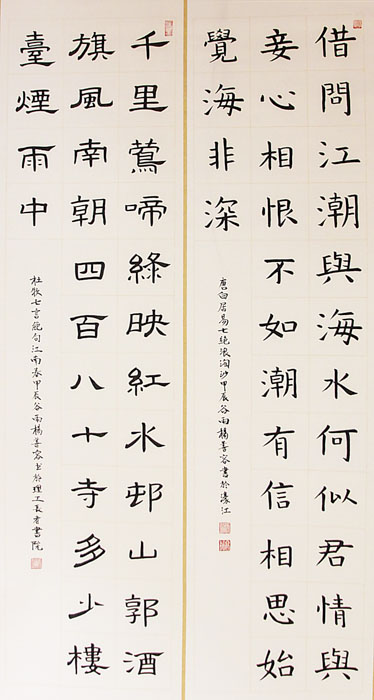 借問江潮與海水何似君情與
妾心相恨不如潮有信相思始
覺海非深
唐白居易七絕浪淘沙甲辰谷雨楊善容書於濠江
千里鶯啼綠映紅水邨山郭酒
旗風南朝四百八十寺多少樓
臺煙雨中
杜牧七言絕句江南春甲辰谷雨楊善容書於理工長者書院